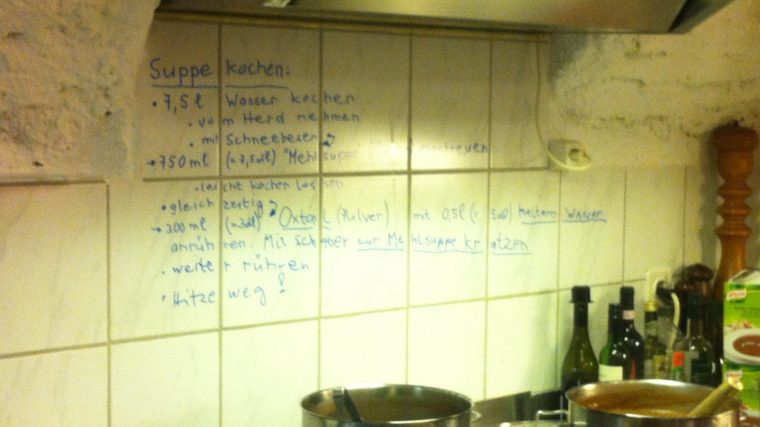 Suppe kochen:
• 7,5 l Wasser kochen
• vom Herd nehmen
• mit Schneebesen
→ 750 ml (= 7,5 dl) Mehlsuppe einstreuen
• leicht kochen lassen
• gleichzeitig
→ 300 ml (= 3dl) Oxtail (Pulver) mit 0,5l (= 5dl) kaltem Wasser
anrühren. Mit Schaber zur Mehlsuppe kratzen
• weiter rühren
• Hitze weg!
Knorr